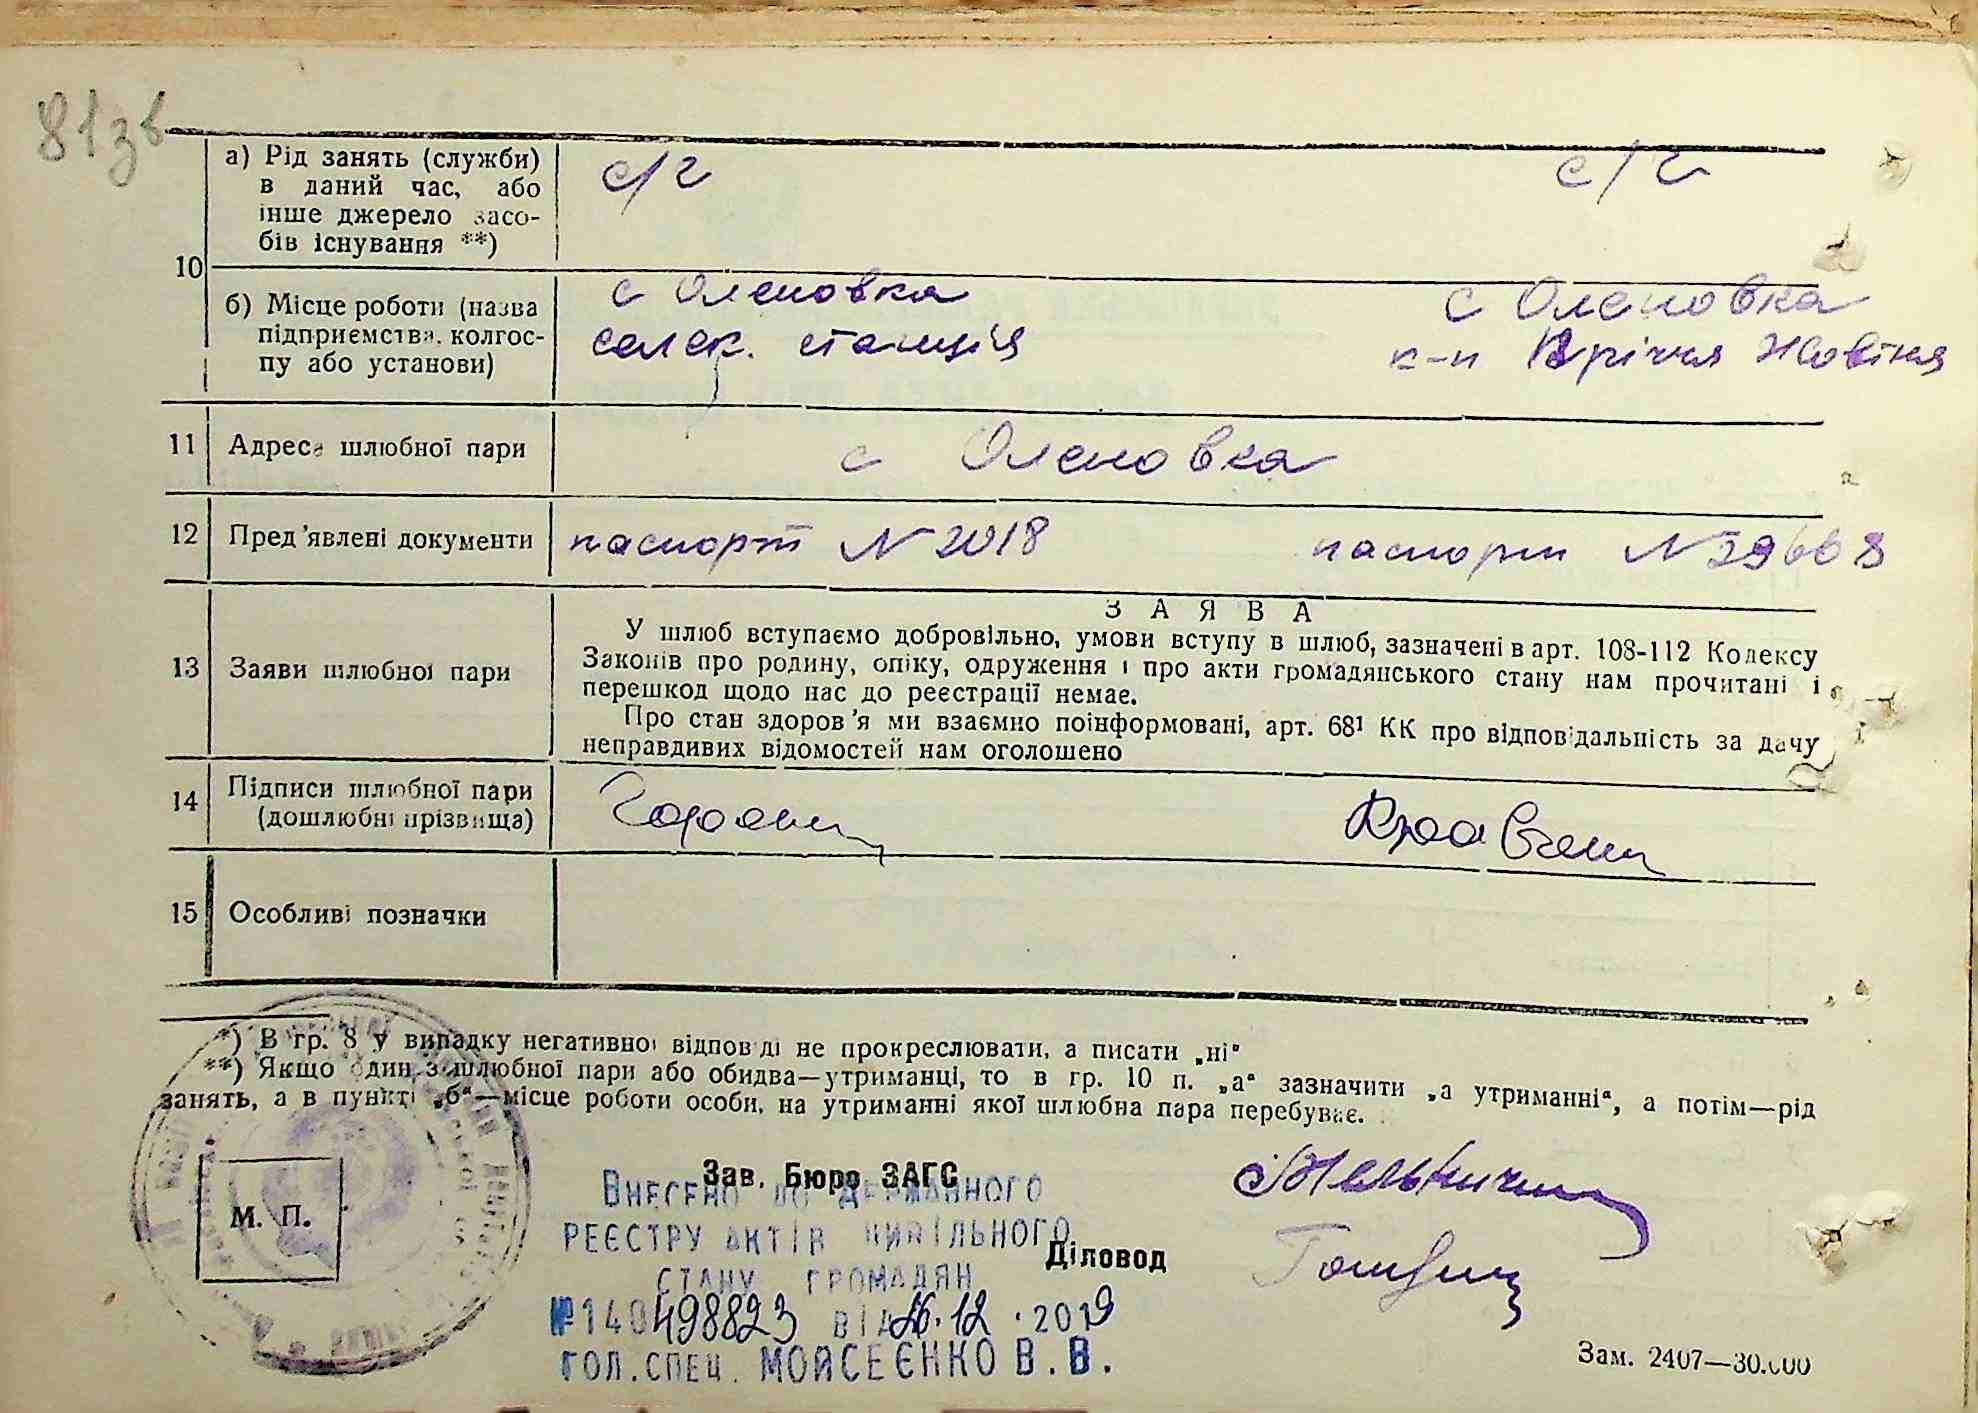 81зв
10
а) Рід занять (служби)
в даний час, або
інше джерело засо-
бів існування **)
с/г
с/г
б) Місце роботи (назва
підприємства, колгос-
пу або установи)
с Оленовка
селек. станція
с Оленовка
к-п річчя Жовтня
11
Адреса шлюбної пари
с Оленовка
12
Пред'явлені документи
паспорт N 2018
паспорт N 39668
13
Заяви шлюбної пари
ЗАЯВА
У шлюб вступаємо добровільно, умови вступу в шлюб, зазначені в арт. 108-112 Кодексу
Законів про родину, опіку, одруження і про акти громадянського стану нам прочитані і
перешкод щодо нас до реєстрації немає.
Про стан здоров'я ми взаємно поінформовані, арт. 68¹ КК про відповідальність за дачу
неправдивих відомостей нам оголошено
14
Підписи шлюбної пари
(дошлюбні прізвища)
15
Особливі позначки
*) В гр. 8 у випадку негативної відповіді не прокреслювати, а писати „ні"
**) Якщо один з шлюбної пари або обидва—утриманці, то в гр. 10 п. „а" зазначити „а утриманні", а потім—рід
занять, а в пункті „б"—місце роботи особи, на утриманні якої шлюбна пара перебуває.
М. П.
Зав. Бюро ЗАГС
Діловод
ВНЕСЕНО ДО ДЕРЖАВНОГО
РЕЄСТРУ АКТІВ ЦИВІЛЬНОГО
СТАНУ ГРОМАДЯН
№140498823 ВІД 26.12.2019
ГОЛ.СПЕЦ. МОЙСЕЄНКО В.В.
Зам. 2407—30.000